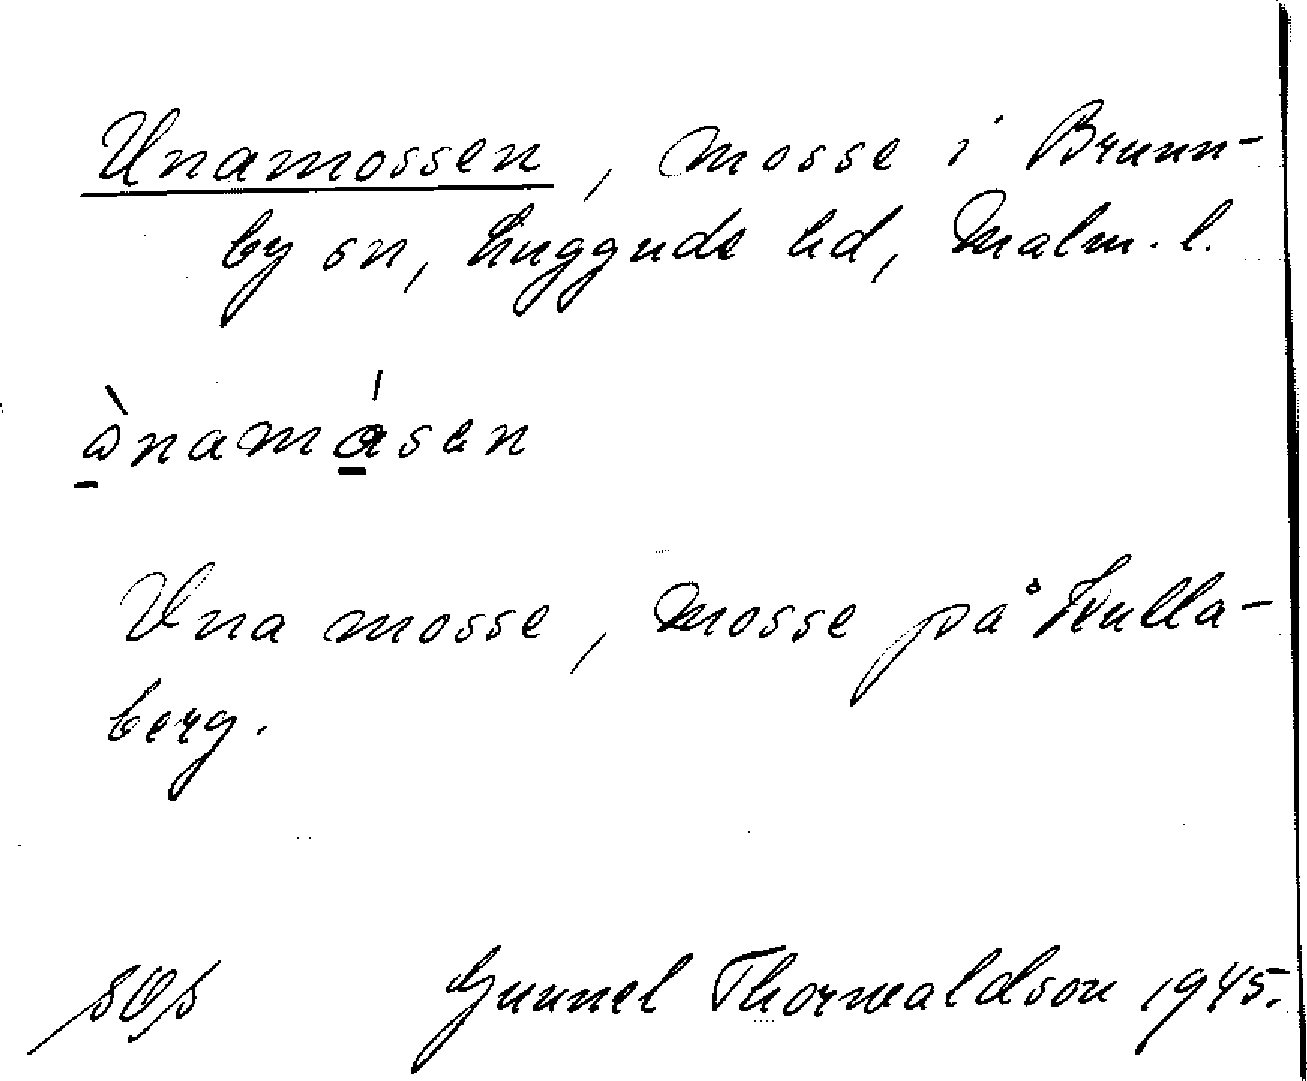 Unamossen, mosse i Brunn-
by sn, Luggude hd, Malm. l.
ùnamåsen
Una mosse, mosse på Kulla-
berg.
Gunnel Thorwaldson 1945.